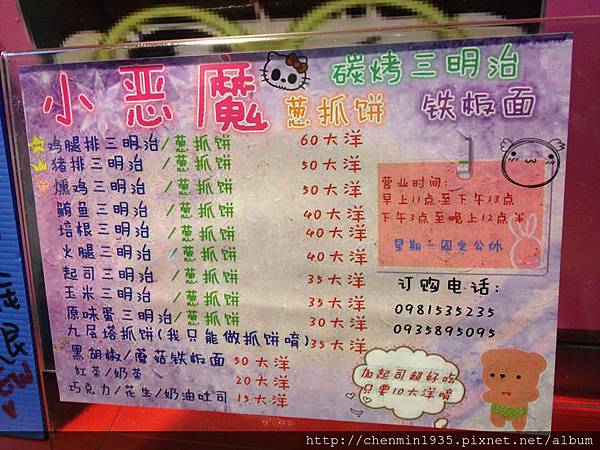 小恶魔
碳烤三明治
葱抓饼 铁板面
鸡腿排三明治/葱抓饼 60大洋
猪排三明治/葱抓饼 50大洋
燻鸡三明治/葱抓饼 50大洋
鲔鱼三明治/葱抓饼 40大洋
培根三明治/葱抓饼 40大洋
火腿三明治/葱抓饼 40大洋
起司三明治/葱抓饼 35大洋
玉米三明治/葱抓饼 35大洋
原味蛋三明治/葱抓饼 30大洋
九层塔抓饼(我只能做抓饼唷) 35大洋
黑胡椒/蘑菇铁板面 50大洋
红茶/奶茶 20大洋
巧克力/花生/奶油吐司 15大洋
营业时间:
早上11点至下午13点
下午3点至晚上12点半
星期一固定公休
订购电话:
0981535235
0935895095
加起司超好吃
只要10大洋唷
http://chenmin1935.pixnet.net/album